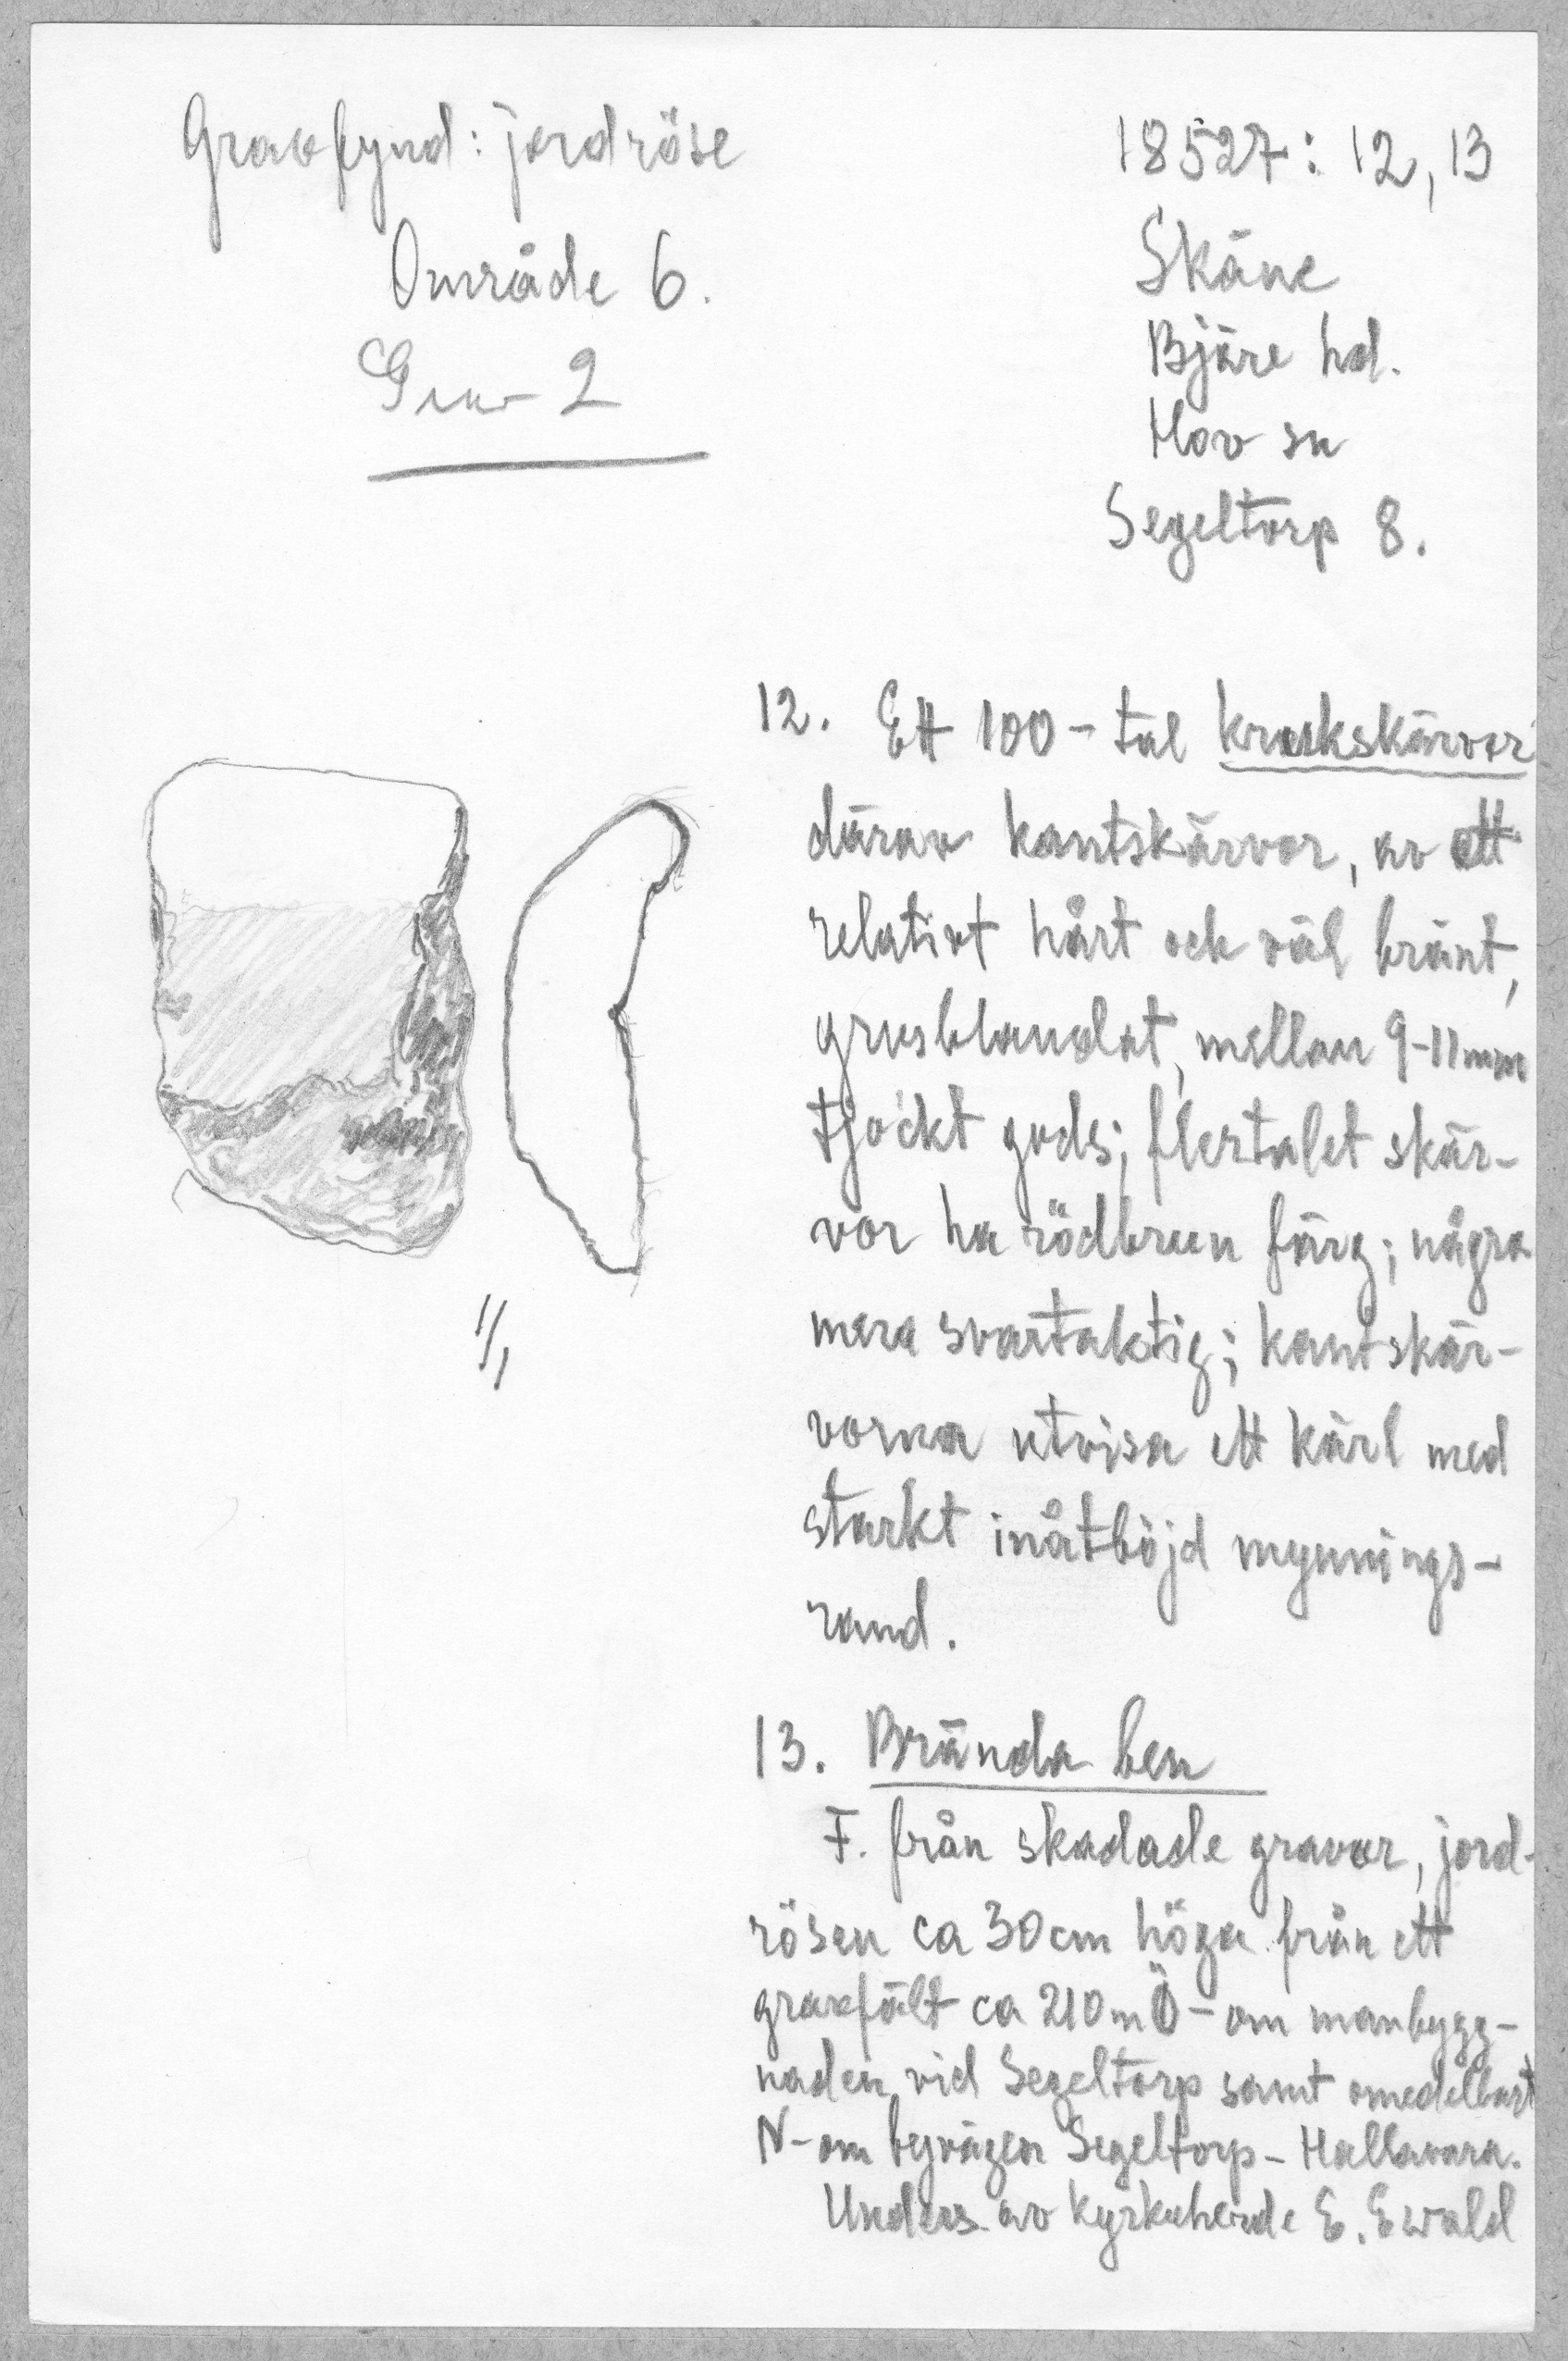 Gravfynd: jordröse
Område 6.
Grav 2
18527: 12, 13
Skåne
Bjäre hd.
Hov sn
Segeltorp 8.
12. Ett 100-tal krukskärvor
därav kantskärvor, av ett
relativt hårt och väl bränt,
grusblandat, mellan 9-11mm
tjockt gods; flertalet skär-
vor ha rödbrun färg; några
mera svartaktig; kantskär-
vorna utvisa ett kärl med
starkt inåtböjd mynnings-
rand.
1/1
13. Brända ben
F. från skadade gravar, jord-
rösen ca 30cm höga från ett
gravfält ca 210m Ö-om manbygg-
naden vid Segeltorp samt omedelbart
N-om byvägen Segeltorp-Hallavara.
Unders. av kyrkoherde E. Ewald